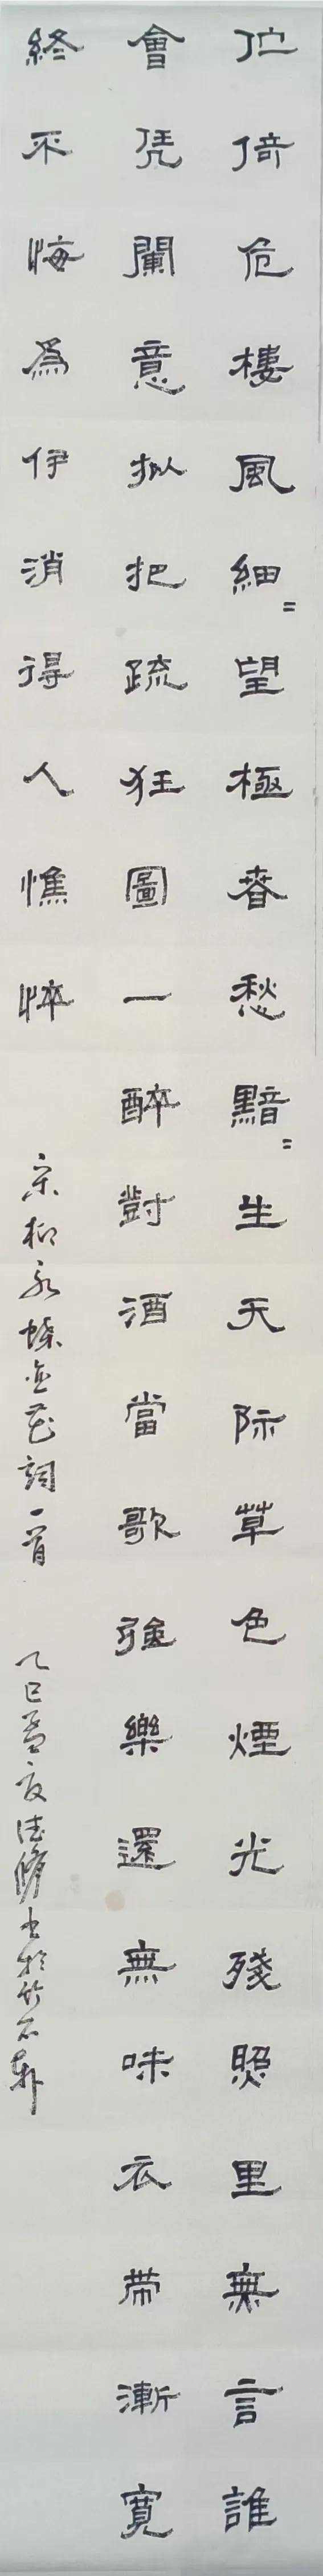 伫倚危樓風細〻望極春愁黯〻生天际草色煙光殘照里無言誰
會凭闌意拟把疏狂圖一醉對酒當歌強樂還無味衣帶漸寬
終不悔爲伊消得人憔悴
宋柳永蝶恋花詞一首
乙巳孟夏德脩书於竹石轩